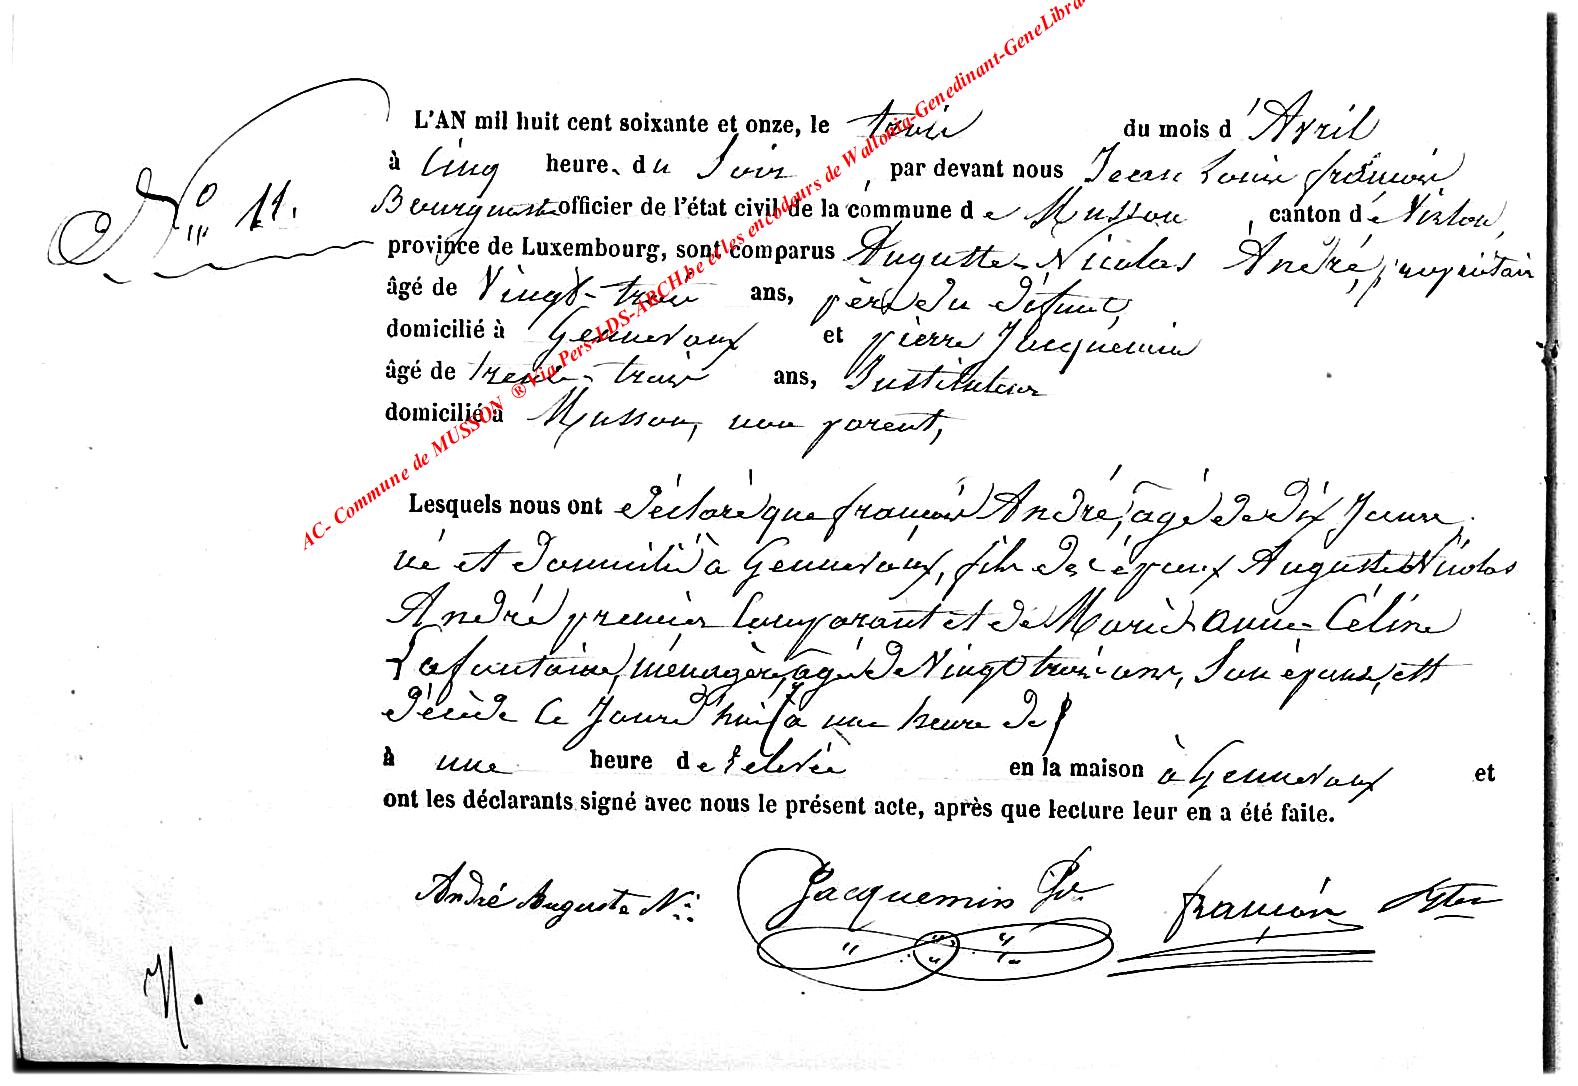 AC- Commune de MUSSON ® Via Pers-LDS-ARCH.be et les encodeurs de Wallonia-Genedinant-GeneLibra
N° 11.
L'AN mil huit cent soixante et onze, le trois du mois d'Avril
à Cinq heure. du Soir, par devant nous Jean Louis françois
officier de l'état civil de la commune de Musson, canton de Virton,
province de Luxembourg, sont comparus Auguste-Nicolas André, propriétair
âgé de Vingt-trois ans, père du défunt,
domicilié à Gennevaux et pierre Jacquemin
âgé de trente-trois ans, Instituteur
domicilié à Musson, non parent,
Lesquels nous ont déclaré que françois André, âgé de dix Jours,
né et domicilié à Gennevaux, fils des époux Auguste Nicolas
André premier Comparant et de Marie anne Céline
Lafontaine, ménagère, âgée de Vingt trois ans, Son épouse, est
décédé ce Jourd'hui à une heure de
à une heure de relevée en la maison à Gennevaux et
ont les déclarants signé avec nous le présent acte, après que lecture leur en a été faite.
André Auguste N. Jacquemin françois
N.